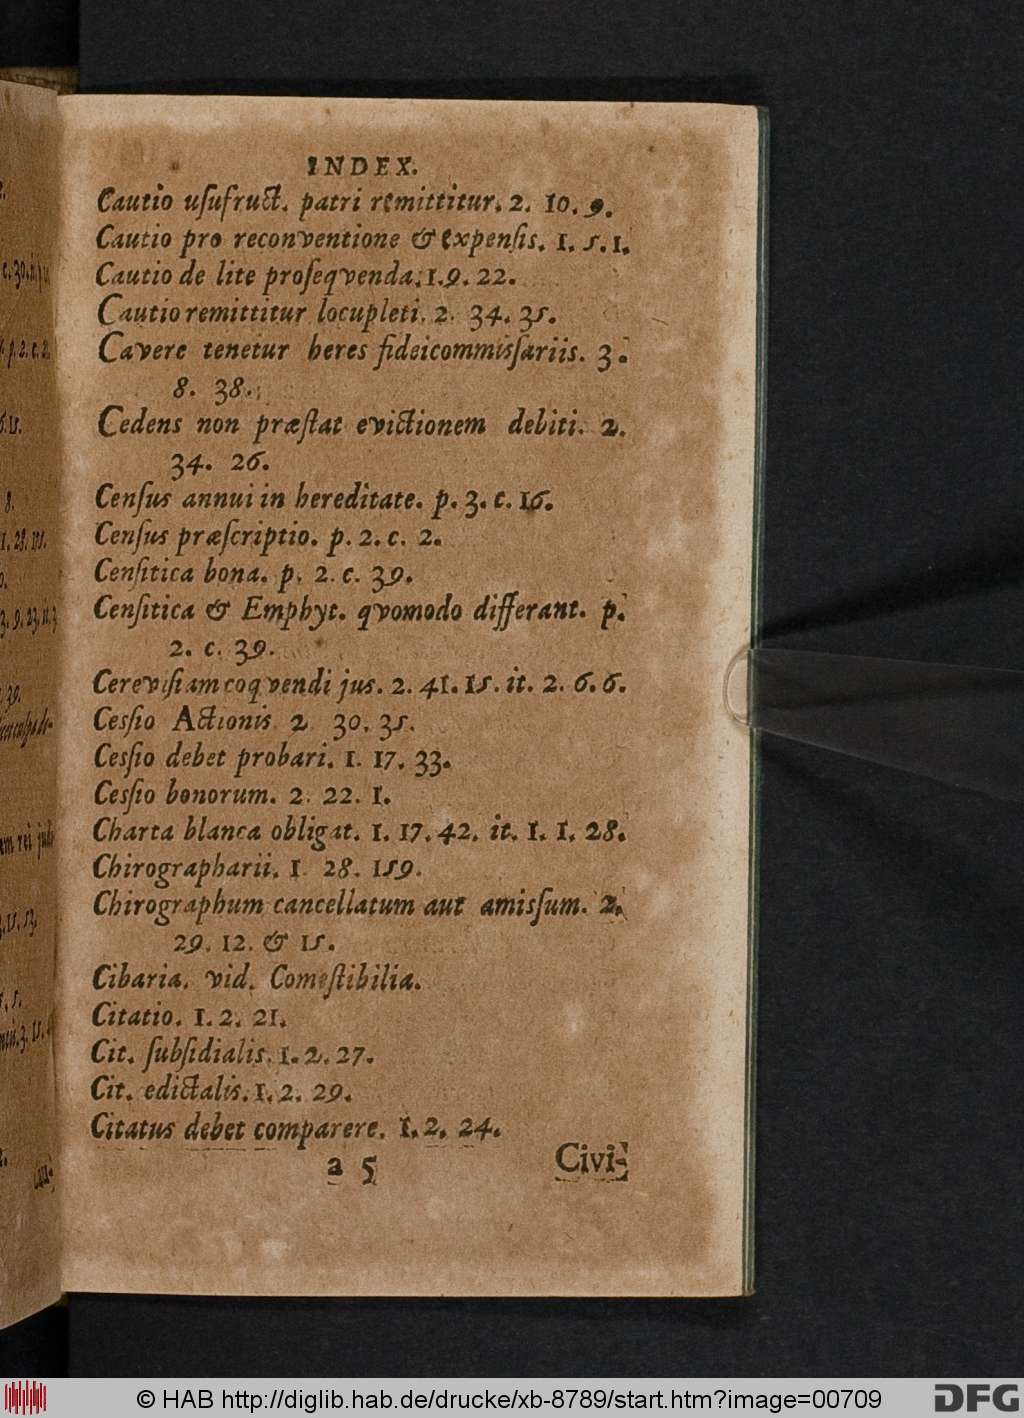 INDEX.
Cautio uſufruct. patri remittitur. 2. 10. 9.
Cautio pro reconventione & expenſis. 1. 5. 1.
Cautio de lite proſeqvenda. 1. 9. 22.
Cautio remittitur locupleti. 2. 34. 35.
Cavere tenetur heres fideicommisſariis. 3.
8. 38.
Cedens non præſtat evictionem debiti. 2.
34. 26.
Cenſus annui in hereditate. p. 3. c. 16.
Cenſus præſcriptio. p. 2. c. 2.
Cenſitica bona. p. 2. c. 39.
Cenſitica & Emphyt. qvomodo differant. p.
2. c. 39.
Cereviſiam coqvendi jus. 2. 41. 15. it. 2. 6. 6.
Cesſio Actionis 2 30. 35.
Cesſio debet probari. 1. 17. 33.
Cesſio bonorum. 2. 22. 1.
Charta blanca obligat. 1. 17. 42. it. 1. 1. 28.
Chirographarii. 1 28. 159.
Chirographum cancellatum aut amisſum. 2.
29. 12. & 15.
Cibaria. vid. Comeſtibilia.
Citatio. 1. 2. 21.
Cit. ſubſidialis. 1. 2. 27.
Cit. edictalis. 1. 2. 29.
Citatus debet comparere. 1. 2. 24.
a 5 Civi-
© HAB http://diglib.hab.de/drucke/xb-8789/start.htm?image=00709
DFG